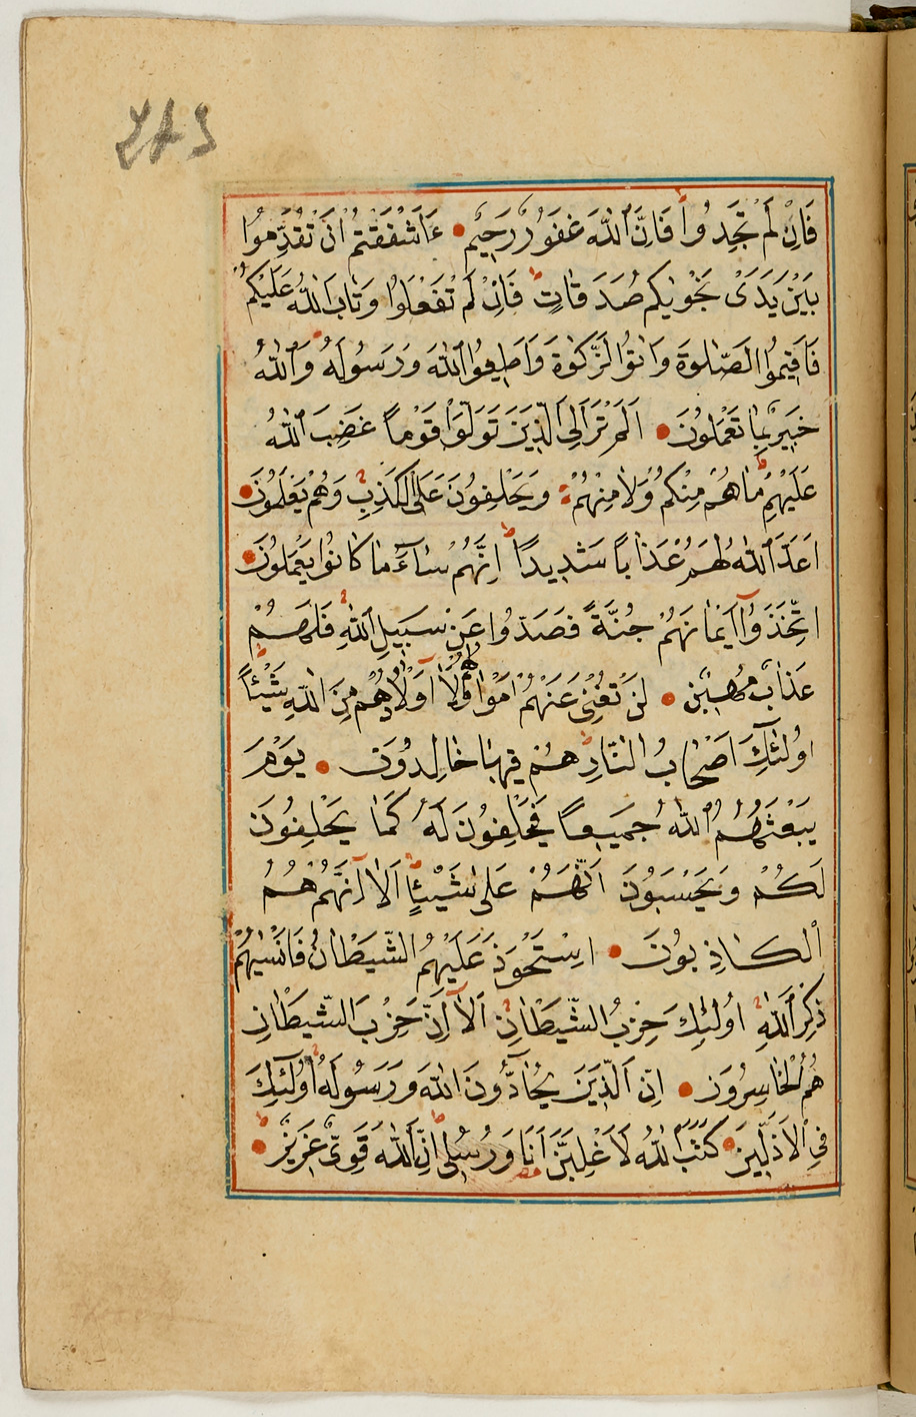 ٢٨٤
فَاِنْ لَمْ تَجِدُوا فَاِنَّ ٱللّٰهَ غَفُورٌ رَحِيمٌ ءَاَشْفَقْتُمْ اَنْ تُقَدِّمُوا
بَيْنَ يَدَىْ نَجْوٰيكُمْ صَدَقَاتٍ ط فَاِنْ لَمْ تَفْعَلُوا وَتَابَ اللّٰهُ عَلَيْكُمْ
فَاَقِيمُوا الصَّلٰوةَ وَاٰتُوا الزَّكٰوةَ وَاَطِيعُوا ٱللّٰهَ وَرَسُولَهُ ط وَٱللّٰهُ
خَبِيرٌ بِمَا تَعْمَلُونَ اَلَمْ تَرَ اِلَى الَّذِينَ تَوَلَّوْا قَوْماً غَضِبَ ٱللّٰهُ
عَلَيْهِمْ ط مَا هُمْ مِنْكُمْ وَلَا مِنْهُمْ وَيَحْلِفُونَ عَلَى الْكَذِبِ وَهُمْ يَعْلَمُونَ
اَعَدَّ ٱللّٰهُ لَهُمْ عَذَاباً شَدِيداً ط اِنَّهُمْ سَآءَ مَا كَانُوا يَعْمَلُونَ
اِتَّخَذُوآ اَيْمَانَهُمْ جُنَّةً فَصَدُّوا عَنْ سَبِيلِ ٱللّٰهِ فَلَهُمْ
عَذَابٌ مُهِينٌ لَنْ تُغْنِىَ عَنْهُمْ اَمْوَالُهُمْ وَلَآ اَوْلَادُهُمْ مِنَ اللّٰهِ شَيْئاً ط
اُولٰٓئِكَ اَصْحَابُ النَّارِ ط هُمْ فِيهَا خَالِدُونَ يَوْمَ
يَبْعَثُهُمُ ٱللّٰهُ جَمِيعاً فَيَحْلِفُونَ لَهُ كَمَا يَحْلِفُونَ
لَكُمْ وَيَحْسَبُونَ اَنَّهُمْ عَلٰى شَيْئٍ ط اَلَآ اِنَّهُمْ هُمُ
ٱلْكَاذِبُونَ اِسْتَحْوَذَ عَلَيْهِمُ الشَّيْطَانُ فَاَنْسٰيهُمْ
ذِكْرَ ٱللّٰهِ ط اُولٰئِكَ حِزْبُ الشَّيْطَانِ ط اَلَآ اِنَّ حِزْبَ الشَّيْطَانِ
هُمُ ٱلْخَاسِرُونَ اِنَّ اَلَّذِينَ يُحَآدُّونَ اللّٰهَ وَرَسُولَهُ اُولٰٓئِكَ
فِى ٱلْاَذَلِّينَ كَتَبَ ٱللّٰهُ لَاَغْلِبَنَّ اَنَا وَرُسُلِى ط اِنَّ ٱللّٰهَ قَوِىٌّ عَزِيزٌ ط